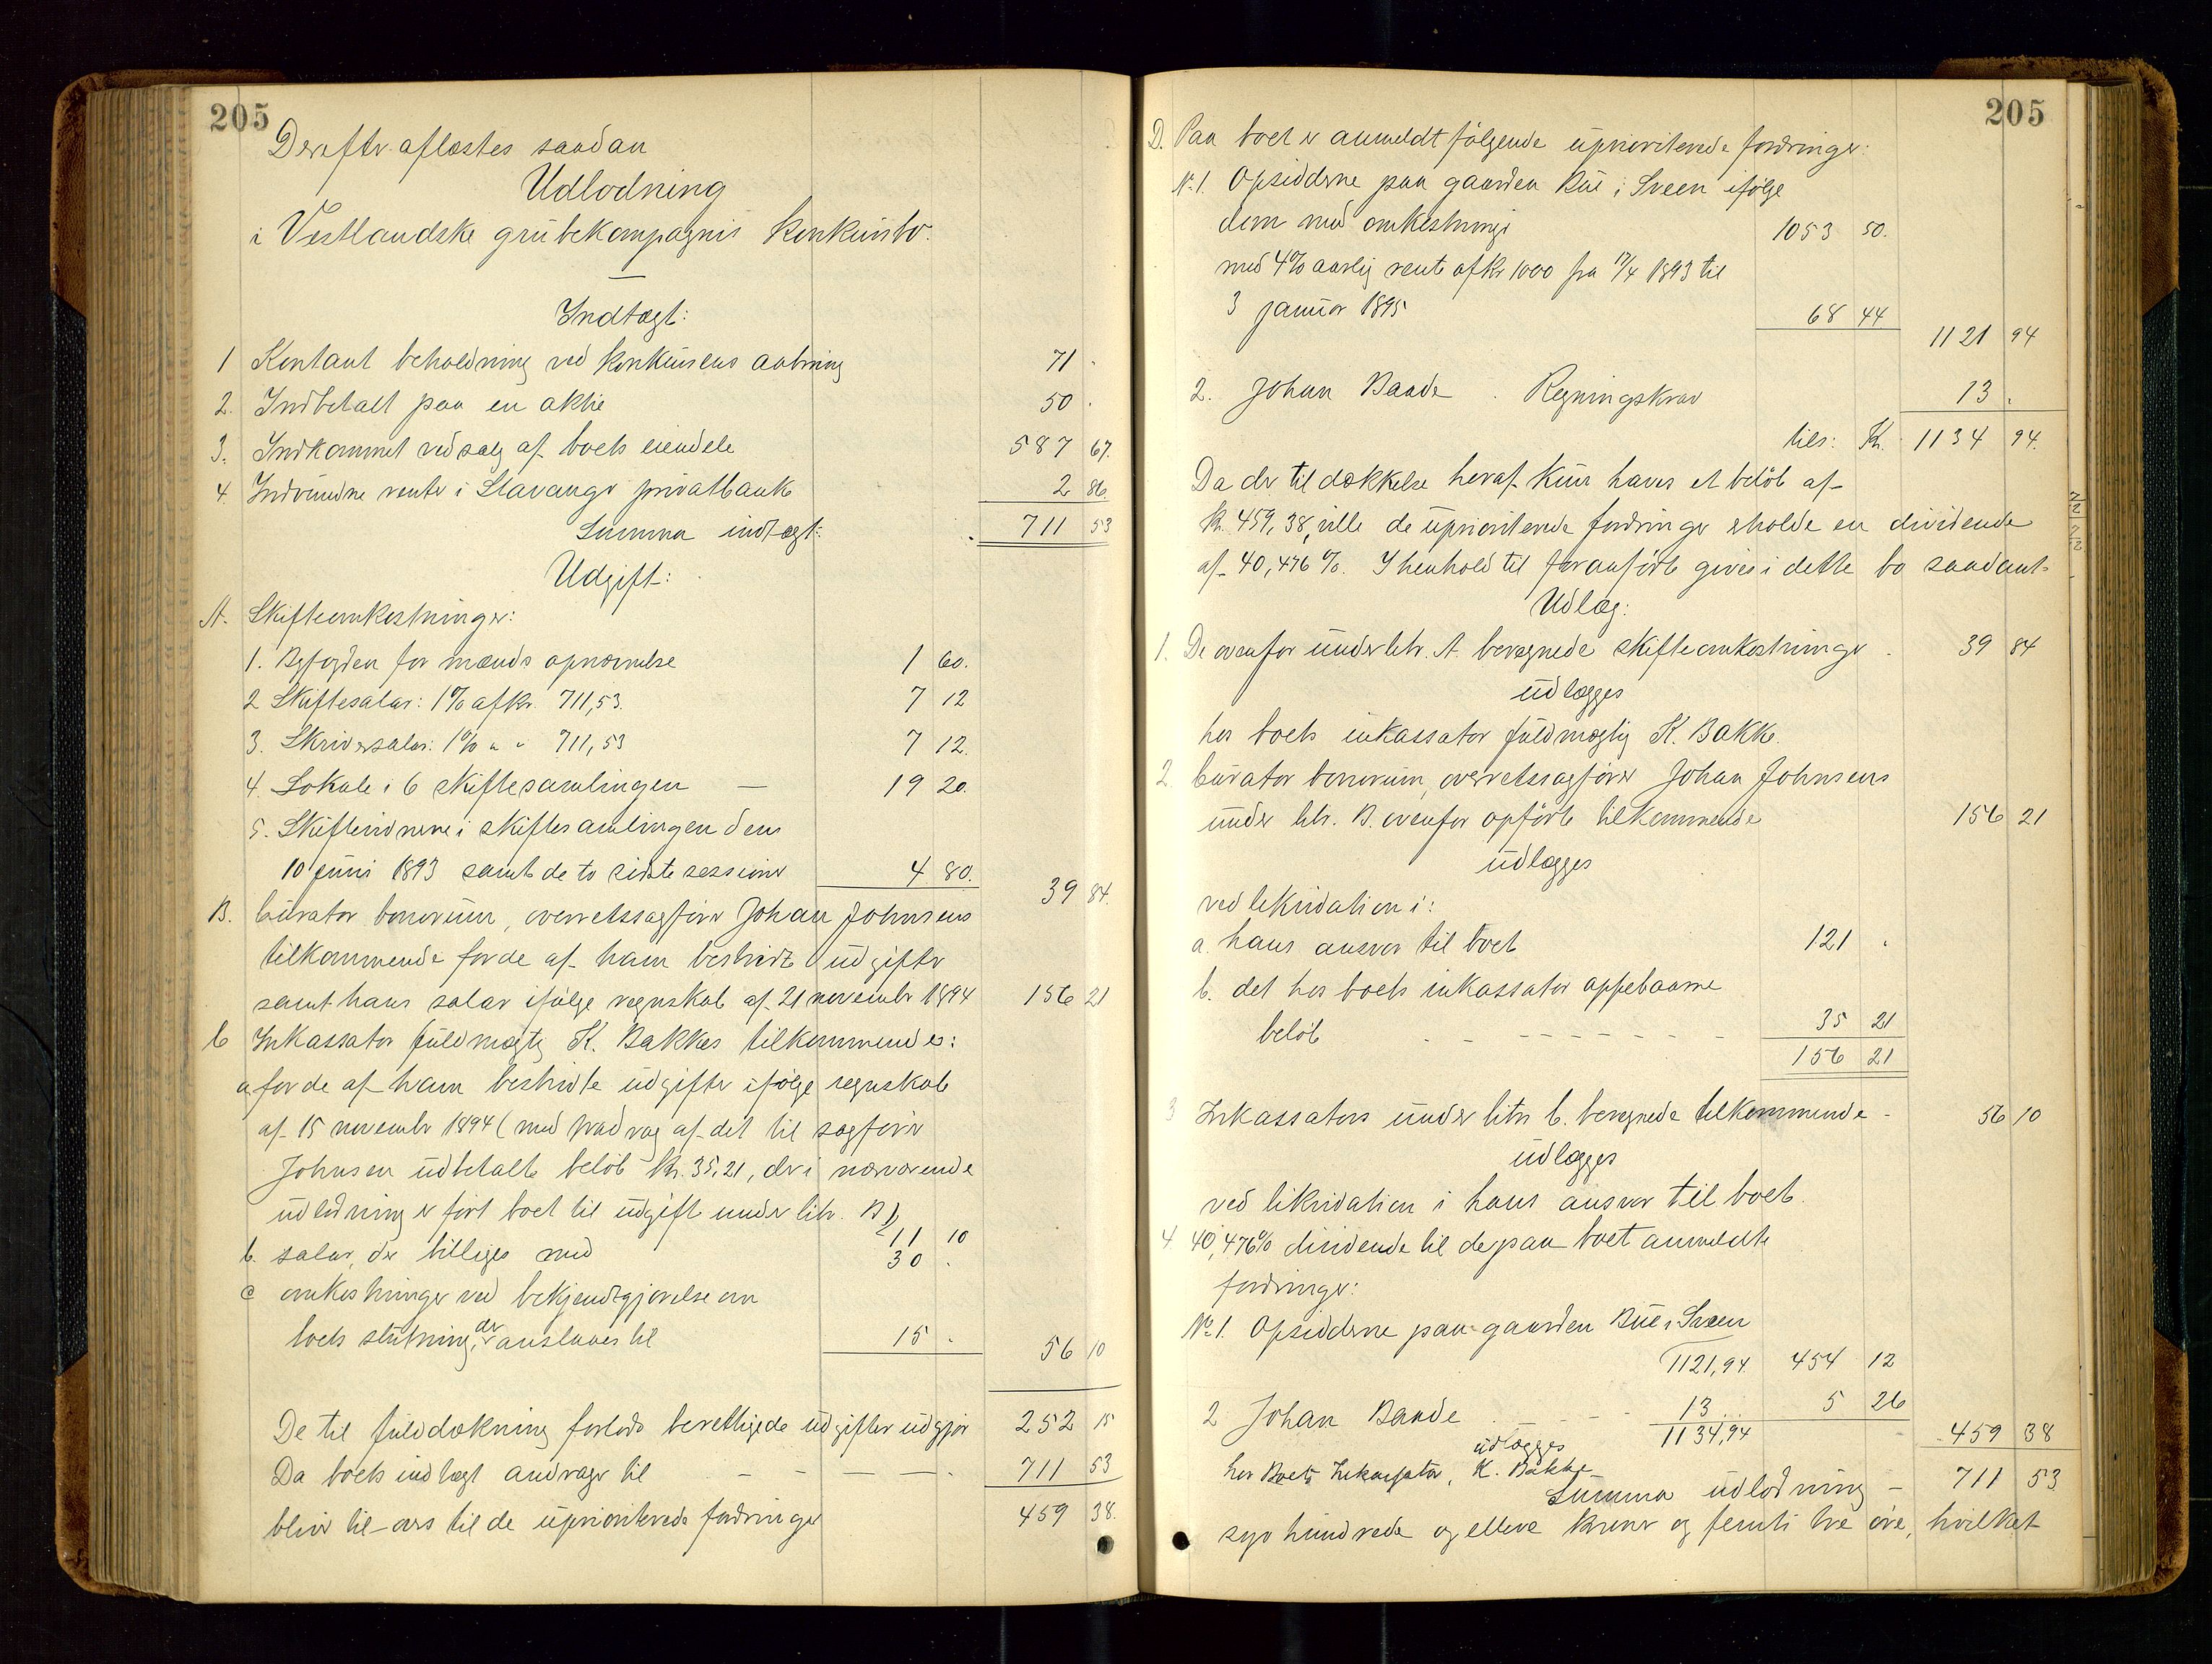 205
Derefter aflæstes saadan
Udlodning
i Vestlandske grubekompagnis konkursbo.
Indtægt:
1 Kontant beholdning ved konkursens aabning 71 .
2. Indbetalt paa en aktie 50 .
3. Indkommet ved salg af boets eiendele 587 67.
4. Indvundne renter i Stavanger privatbank 2 86.
Summa indtægt: 711 53
Udgift:
A. Skifteomkostninger:
1. Byfogden for mænds opnævnelse 1 60.
2 Skiftesalær: 1% af kr. 711,53. 7 12
3. Skriversalær: 1% " " 711,53 7 12.
4. Lokale i 6 skiftesamlingen — 19 20.
5. Skiftevidnerne i skiftesamlingen den
10 juni 1893 samt de to sidste sessioner 4 80. 39 84.
B. Curator bonorum, overretssagfører Johan Johnsens
tilkommende for de af ham bestridte udgifter
samt hans salær ifølge regnskab af 21 november 1894 156 21
C Inkassator fuldmægtig K. Bakkes tilkommendes:
a for de af ham bestridte udgifter ifølge regnskab
af 15 november 1894 (med fradrag af det til sagfører
Johnsen udbetalte beløb kr. 35,21, der i nærværende
udlodning er ført boet til udgift under litr. B.) 11 10
b. salær, der billiges med 30 .
c omkostninger ved bekjendtgjørelse om
boets slutning, der anslaaes til 15 . 56 10
De til fulddækning forlods berettigede udgifter udgjør 252 15
Da boets indtægt andrager til — — — — 711 53
blir til-overs til de uprioriterede fordringer 459 38.
205
D. Paa boet er anmeldt følgende uprioriterede fordringer:
No. 1. Opsidderne paa gaarden Bue i Sveen ifølge
dom med omkostninger 1053 50.
med 4% aarlig rente af kr 1000 fra 17/4 1893 til
3 januar 1895 68 44 1121 94
2. Johan Baade . Regningskrav 13 .
tils: Kr. 1134 94.
Da der til dækkelse heraf kun haves et beløb af
kr. 459,38, ville de uprioriterede fordringer erholde en dividende
af 40,476 %. I henhold til foranførte gives i dette bo saadant
Udlæg:
1. De ovenfor under litr. A. beregnede skifteomkostninger . 39 84
udlægges
hos boets inkassator fuldmægtig K. Bakke.
2 Curator bonorum, overretssagfører Johan Johnsens
under litr. B. ovenfor opførte tilkommende 156 21
udlægges
ved likvidation i:
a. hans ansvar til boet 121 .
b. det hos boets inkassator oppebaarne
beløb - - - - - - - - 35 21
156 21
3 Inkassators under litr C. beregnede tilkommende - 56 10
udlægges
ved likvidation i hans ansvar til boet.
4. 40,476% dividende til de paa boet anmeldte
fordringer:
No. 1. Opsidderne paa gaarden Bue i Sveen
1121,94 454 12
2 Johan Baade - - - 13... 5 26
1134,94 459 38
udlægges
hos Boets Inkassator, K. Bakke
Summa udlodning - 711 53
syv hundrede og elleve kroner og femti tre øre, hvilket